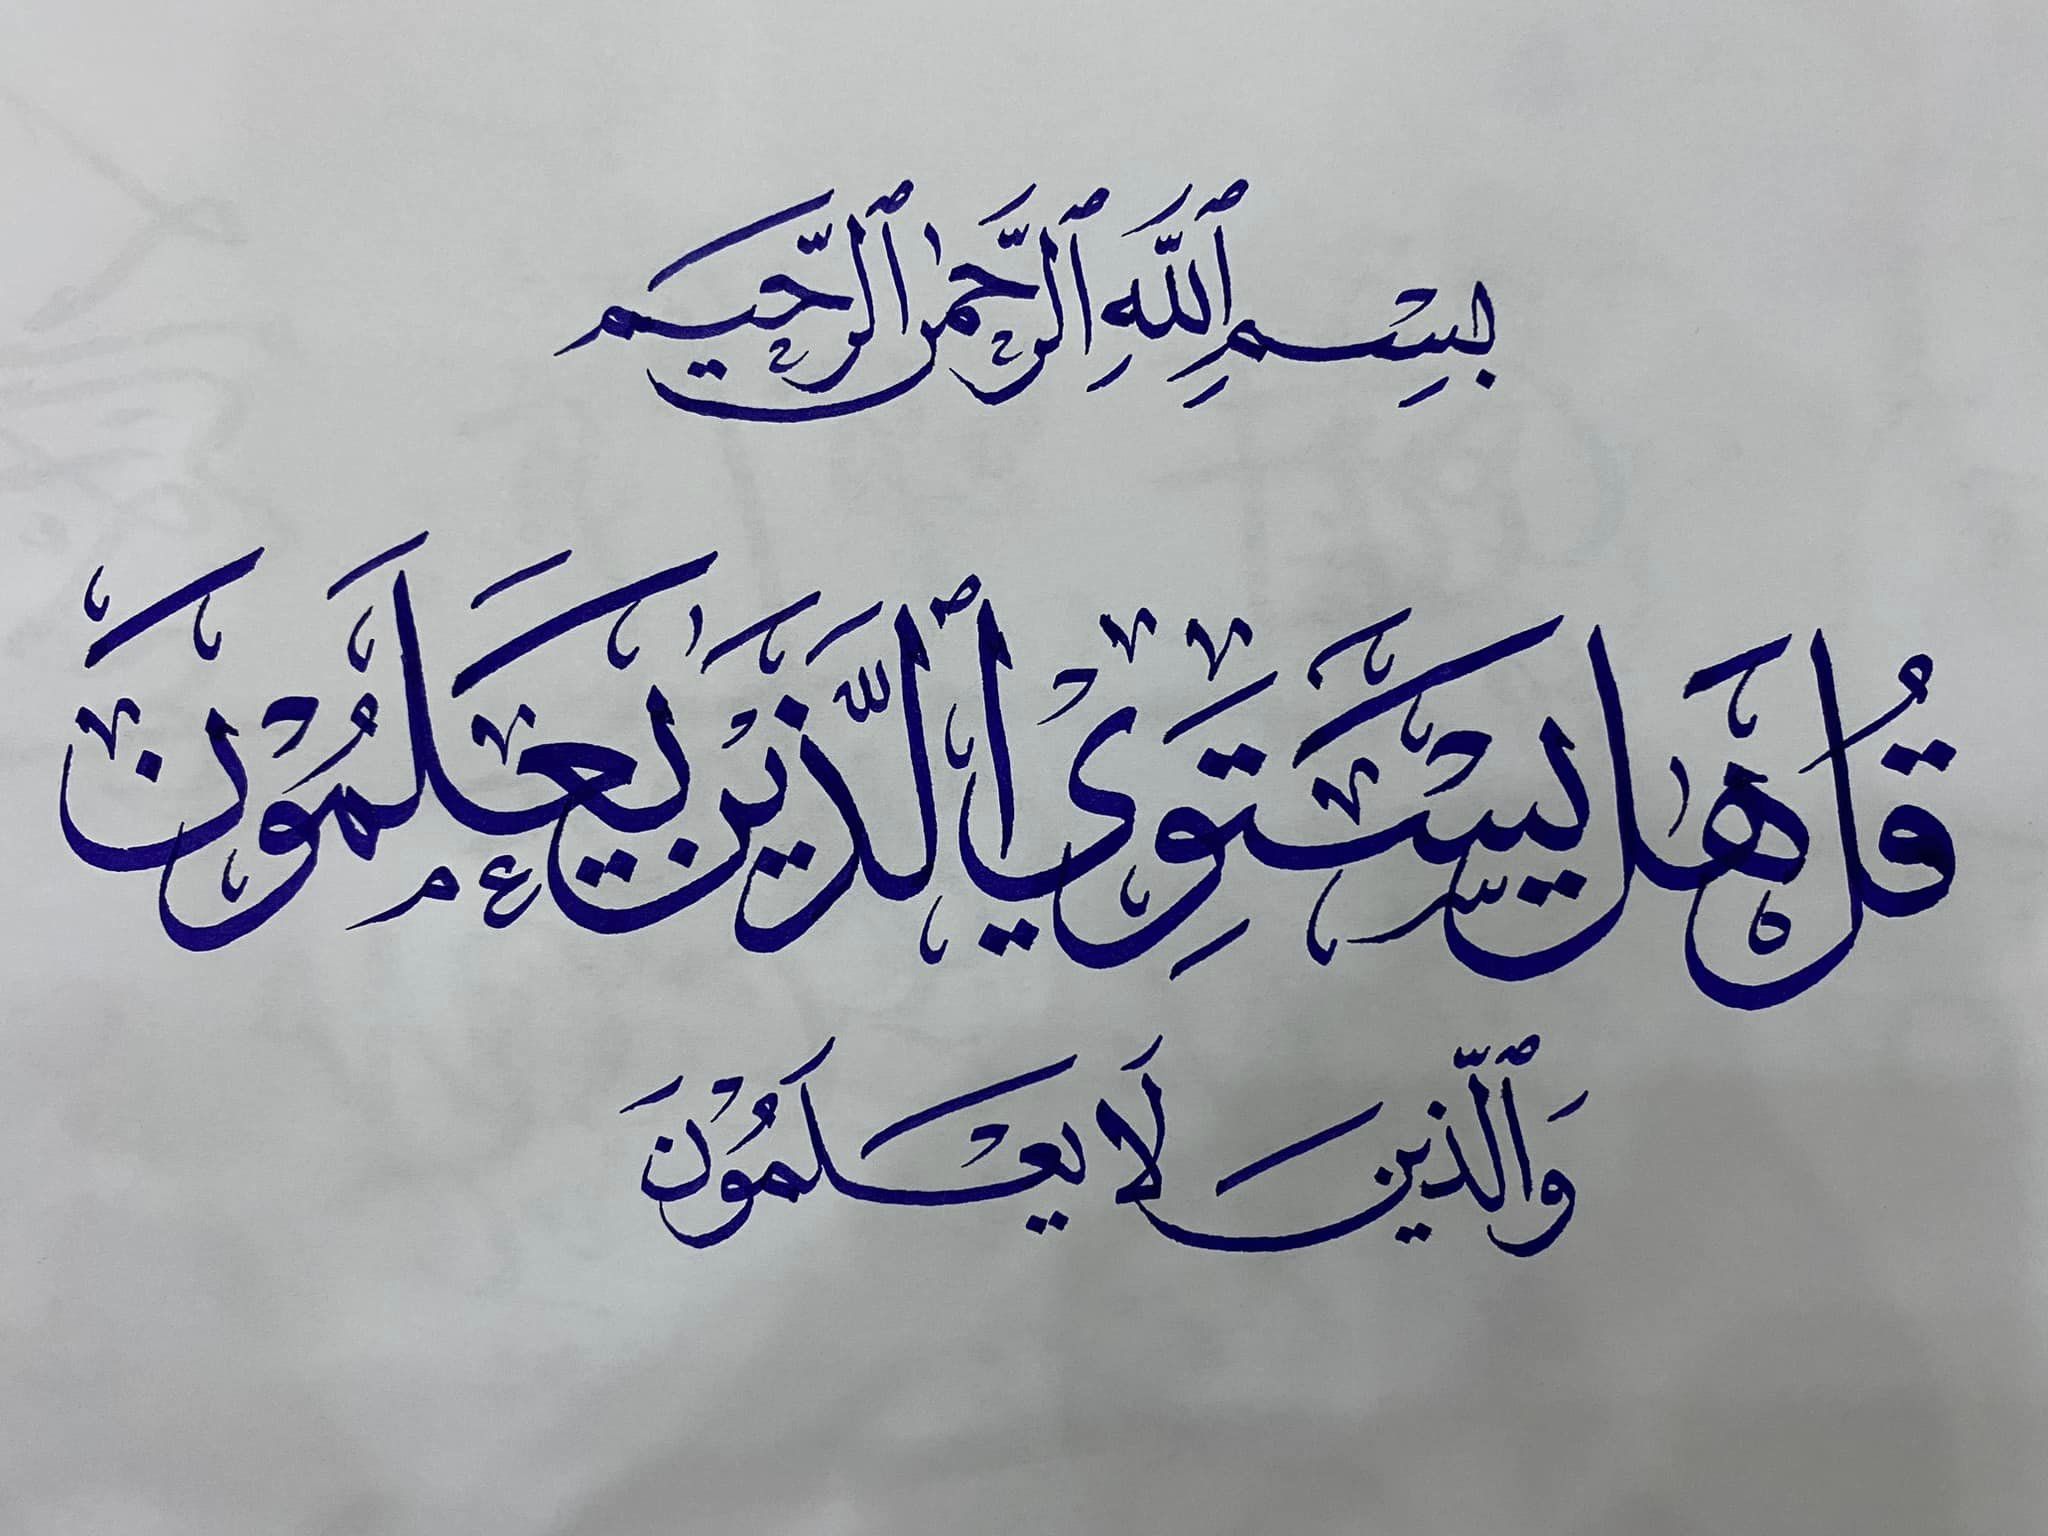 بِسْمِ ٱللَّهِ ٱلرَّحْمٰنِ ٱلرَّحِيمِ
قُلْ هَلْ يَسْتَوِي ٱلَّذِينَ يَعْلَمُونَ
وَٱلَّذِينَ لَا يَعْلَمُونَ